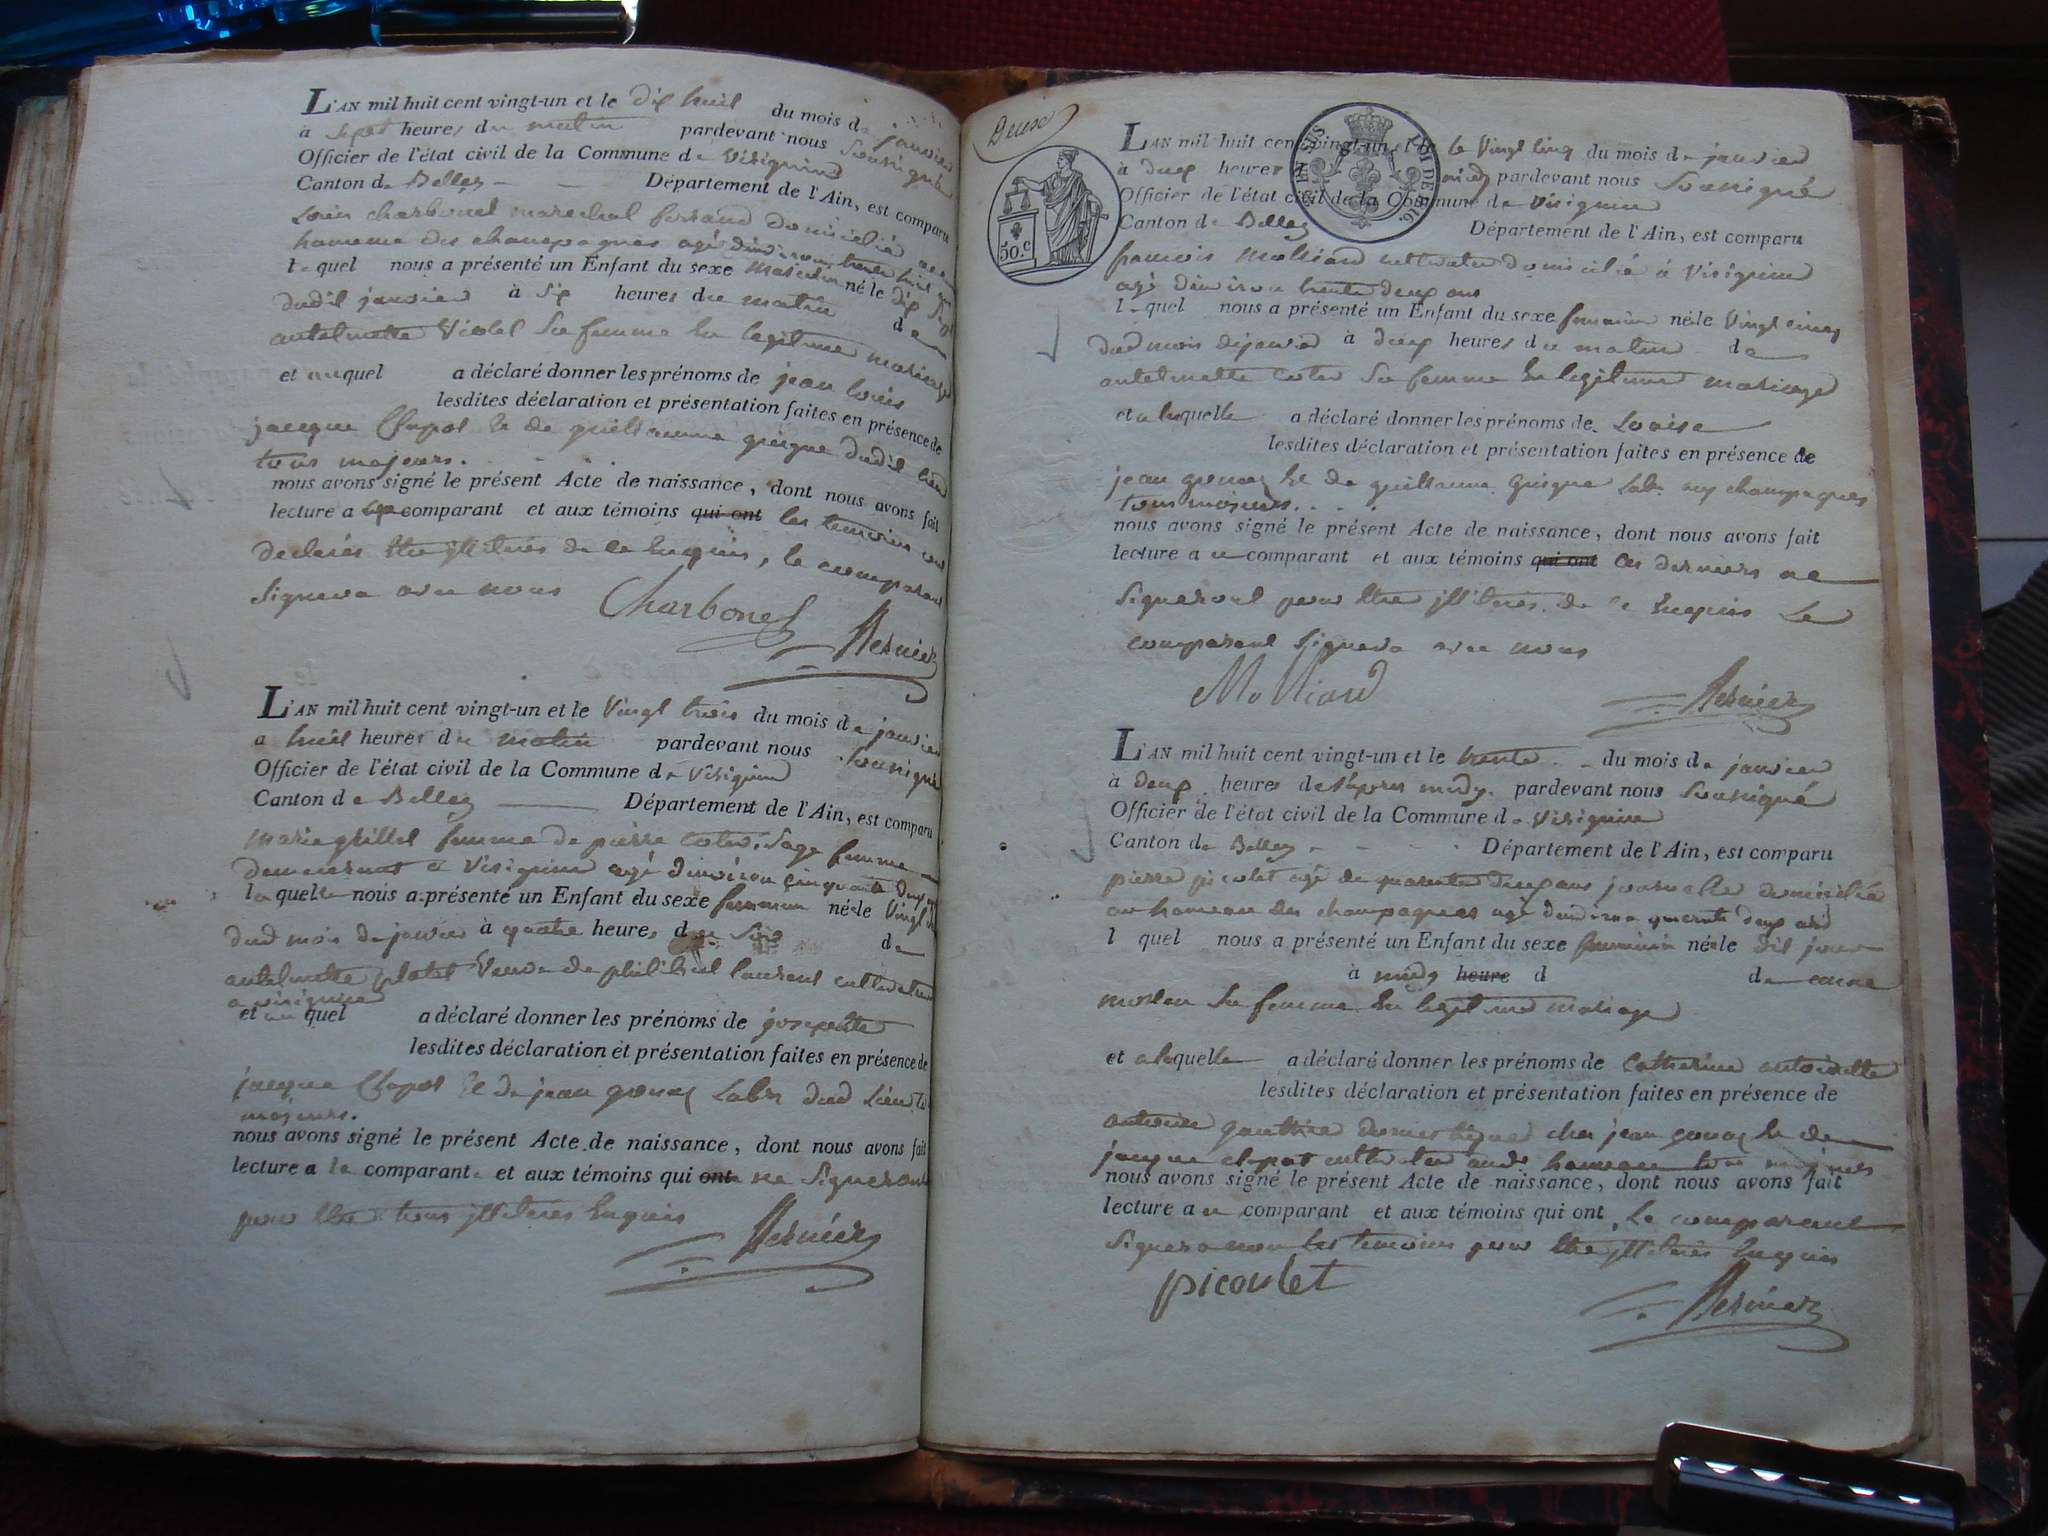 L'AN mil huit cent vingt-un et le dix huit du mois de janvier
à sept heures du matin pardevant nous soussigné
Officier de l'état civil de la Commune de Virignin
Canton de Belley Département de l'Ain, est comparu
Louis charbonel marechal ferrand domicilié
hameau des champagnes agé d'environ trente huit
lequel nous a présenté un Enfant du sexe masculin né le dix
dudit janvier à six heures du matin de
antelmette Violet sa femme en legitime mariage
et auquel a déclaré donner les prénoms de jean Louis
lesdites déclaration et présentation faites en présence de
jacque Chapot et de guillaume guigue dudit lieu
tous majeurs.
nous avons signé le présent Acte de naissance, dont nous avons fait
lecture a comparant et aux témoins qui ont les temoins
declarés être illiterés de ce Enquis, le comparant
signera avec nous
Charbonel
L'AN mil huit cent vingt-un et le Vingt trois du mois de janvier
a huit heures du matin pardevant nous soussigné
Officier de l'état civil de la Commune de Virignin
Canton de Belley Département de l'Ain, est comparu
marie grillet femme de pierre cotter sage femme
demeurant à Virignin agé d'environ cinquante deux
laquelle nous a présenté un Enfant du sexe feminin née le Vingt
dud mois de janvier à quatre heures du soir de
antelmette platet Veuve de philibert laurent cultivateur
a virignin
et quel a déclaré donner les prénoms de josephte
lesdites déclaration et présentation faites en présence de
jacque Chapot et de jean gonet Labr dud Lieu
majeurs.
nous avons signé le présent Acte de naissance, dont nous avons fait
lecture a la comparante et aux témoins qui ont ne signeront
pour être tous illiterés Enquis
Deux
50.c
L'AN mil huit cent vingt-un et le le Vingt cinq du mois de janvier
à deux heures pardevant nous soussigné
Officier de l'état civil de la Commune de Virignin
Canton de Belley Département de l'Ain, est comparu
francois molliard cultivateur domicilié à Virignin
agé d'environ trente deux ans
lequel nous a présenté un Enfant du sexe feminin née le Vingt cinq
dud mois de janvier à deux heures du matin de
antelmette cotter sa femme en legitime mariage
et a laquelle a déclaré donner les prénoms de Louise
lesdites déclaration et présentation faites en présence de
jean gonet et de guillaume guigue Labr aux champagnes
tous majeurs.
nous avons signé le présent Acte de naissance, dont nous avons fait
lecture a ce comparant et aux témoins qui ont ces derniers ne
signeront pour être illiterés de ce Enquis Le
comparant signera avec nous
Molliard
L'AN mil huit cent vingt-un et le trente du mois de janvier
à deux heures de l'apres midy pardevant nous soussigné
Officier de l'état civil de la Commune de Virignin
Canton de Belley Département de l'Ain, est comparu
pierre picolet agé de quarante deux ans journallier domicilié
au hameau des champagnes agé d'environ quarante deux ans
l quel nous a présenté un Enfant du sexe feminin née le dit jour
à midy heure d de
sa femme en legitime mariage
et a laquelle a déclaré donner les prénoms de Catherine antoinette
lesdites déclaration et présentation faites en présence de
antoine gauthier domestique chez jean gonet et de
jacque chapot cultivateur audt hameau tous majeurs
nous avons signé le présent Acte de naissance, dont nous avons fait
lecture a ce comparant et aux témoins qui ont, Le comparant
signera non les temoins pour être illiterés Enquis
picoulet